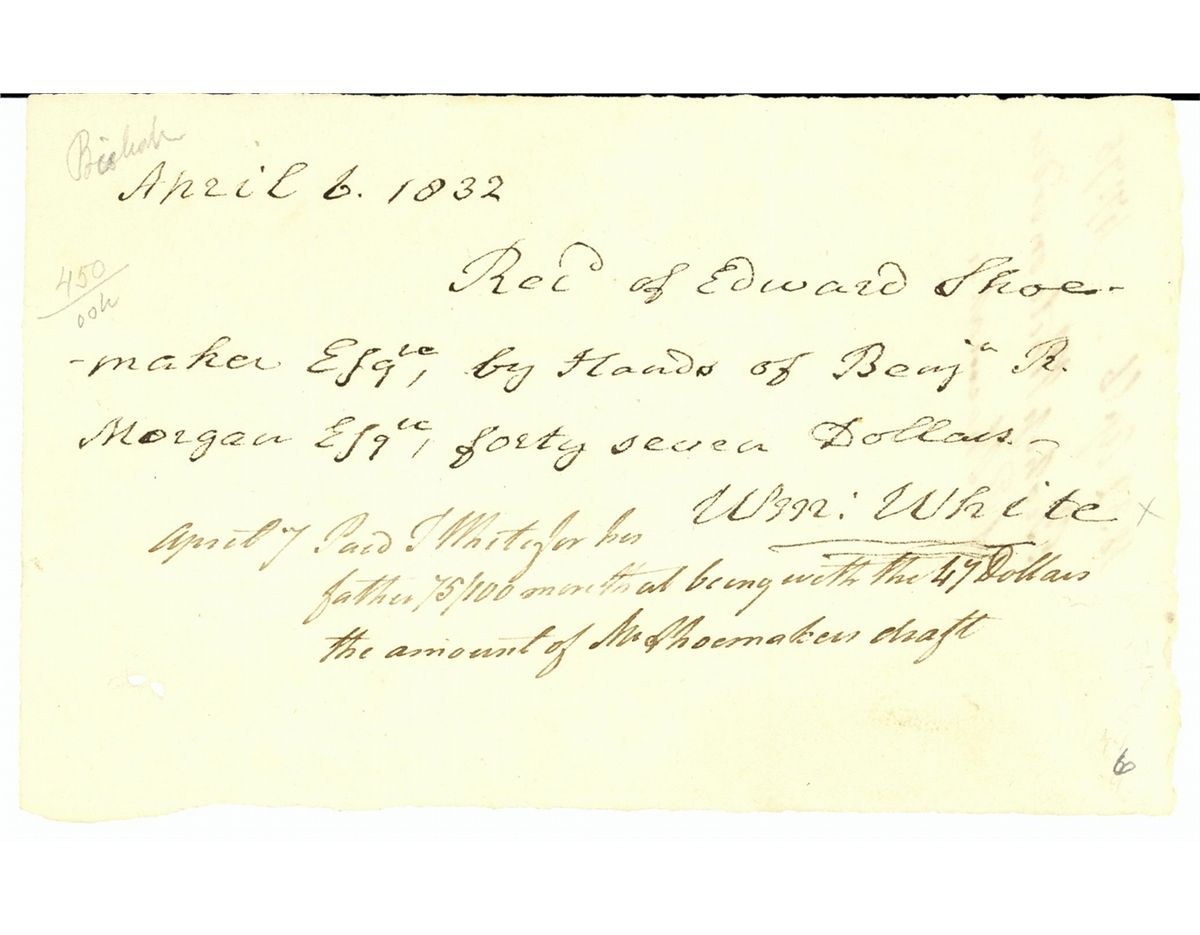 Bishop
April 6. 1832
450
Rec^d of Edward Shoe-
-maker Esq^re, by Hands of Benj^n R.
Morgan Esq^re, forty seven Dollars
Wm: White
April 7 Paid T White for his
father 75/100 more that being with the 47 Dollars
the amount of Mr Shoemakers draft
6